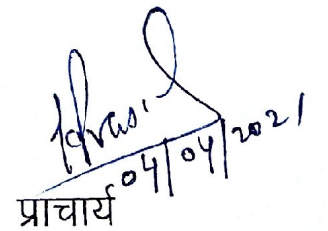 04/04/2021
प्राचार्य